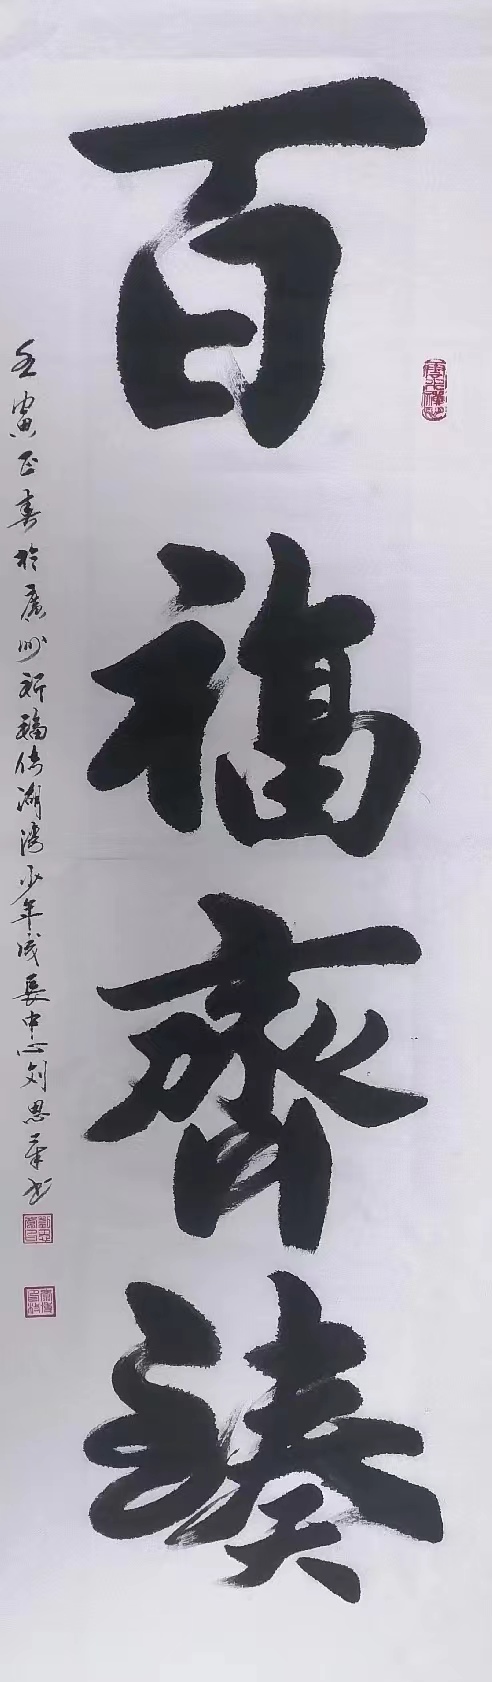 百福齊湊
壬寅正春於廣州祈福倚湖灣少年成長中心刘思華书